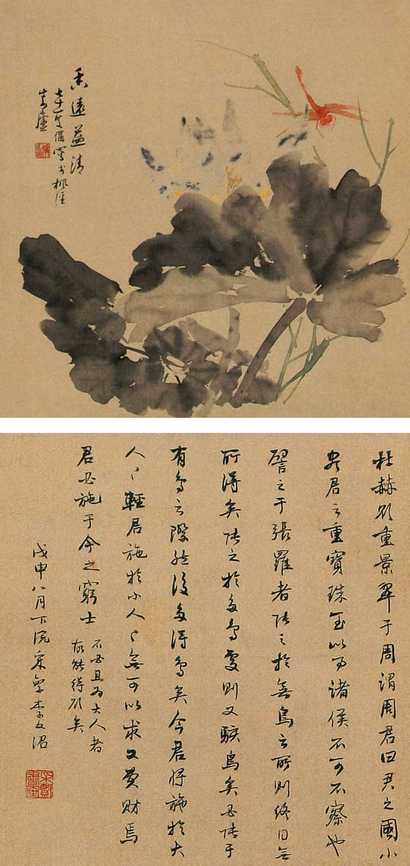 香遠益清
杜赫欲重景翠于周謂周君曰君之國小
盡君之重寶珠玉以事諸侯不可不察也
譬之于張羅者張之於無鳥之所則終日無
所得矣張之於多鳥處則又駭鳥矣必張于
有鳥之際然後多得鳥矣今君將施於大
人〻輕君施於小人〻無可以求又費財焉
君必施于今之窮士
不必且為大人者
故能得欲矣
戊申八月下浣